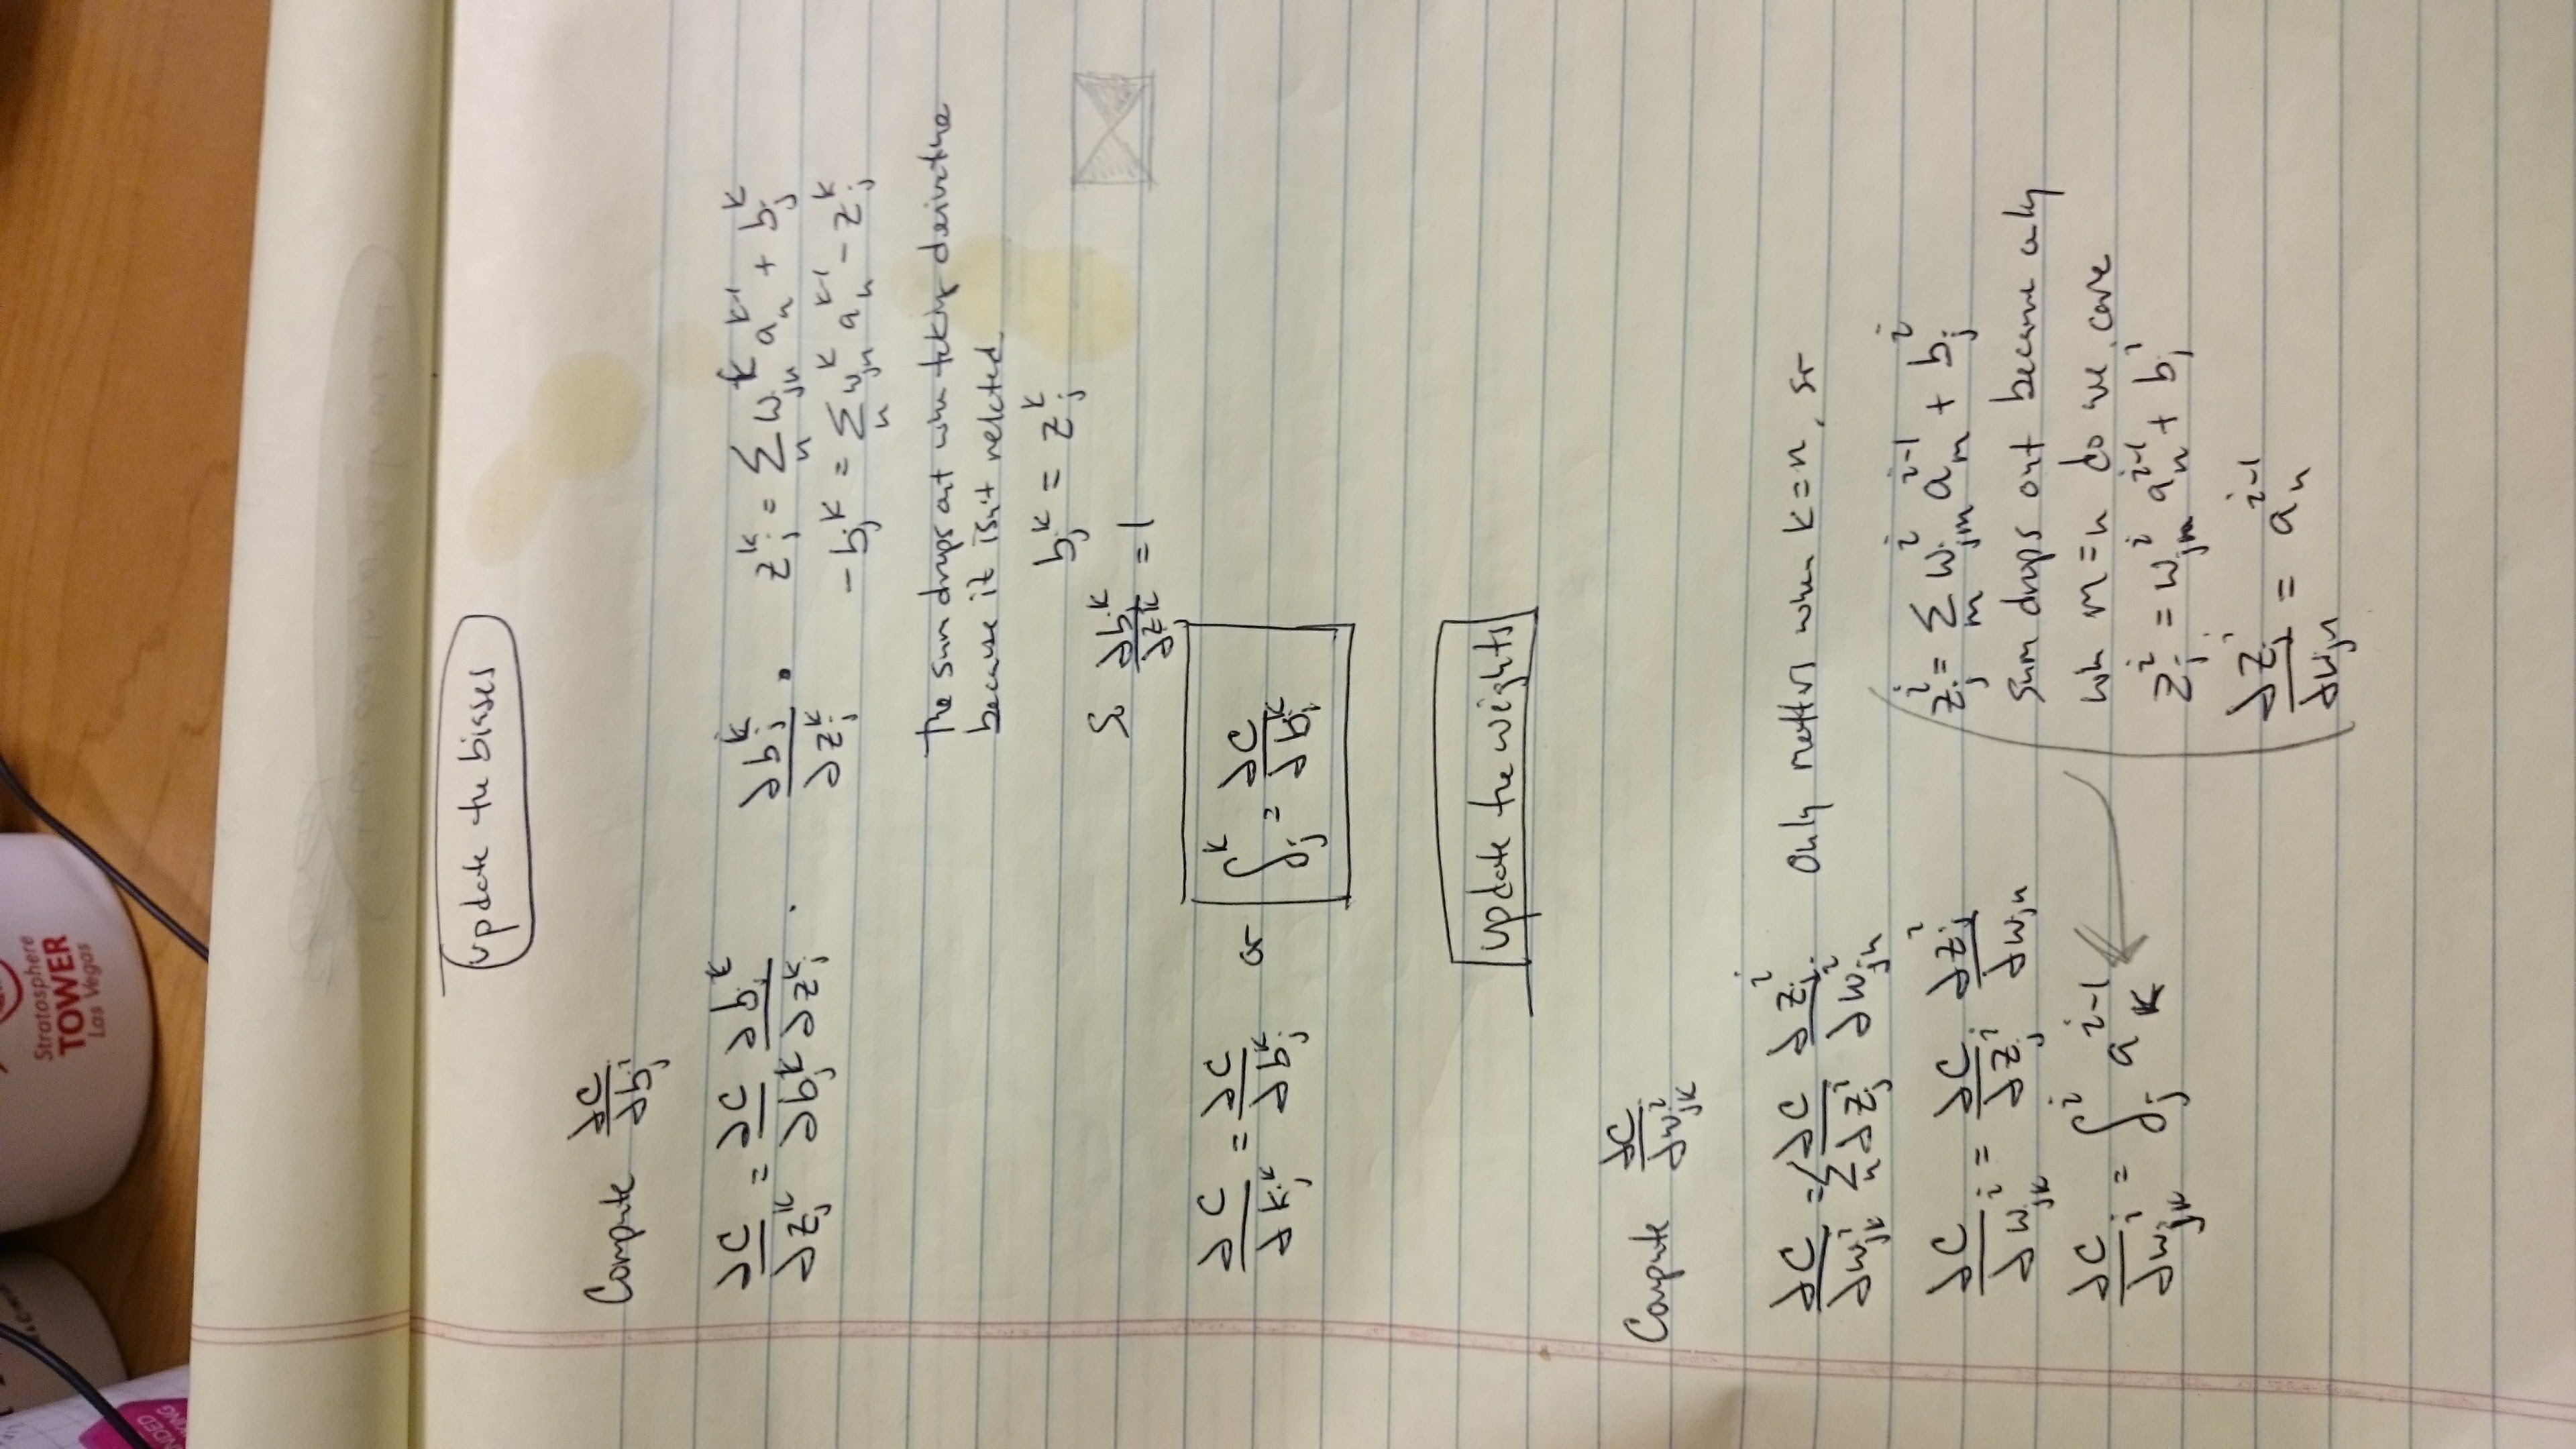 Stratosphere
TOWER
Las Vegas
NDED
KING
update the biases
Compute ∂C/∂b_j^i
∂C/∂z_j^k = ∂C/∂b_j^k ∂b_j^k/∂z_j^k . ∂b_j^k/∂z_j^k . z_j^k = Σ_n w_jn^k a_n^k-1 + b_j^k
-b_j^k = Σ_n w_jn^k a_n^k-1 - z_j^k
The sum drops out when taking derivative
because it isn't related
b_j^k = z_j^k
So ∂b_j^k/∂z_j^k = 1
∂C/∂k_j^k = ∂C/∂b_j^k or δ_j^k = ∂C/∂b_j^k
update the weights
Compute ∂C/∂w_jk^i
∂C/∂w_jk^i = Σ_n ∂C/∂z_j^i ∂z_j^i/∂w_jn^i Only matters when k=n, so
∂C/∂w_jk^i = ∂C/∂z_j^i ∂z_j^i/∂w_jn
∂C/∂w_jk^i = δ_j^i a_k^i-1
z_j^i = Σ_m w_jm^i a_m^i-1 + b_j^i
sum drops out because only
when m=n do we care
z_j^i = w_jm^i a_n^i-1 + b_j^i
∂z_j^i/∂w_jn = a_n^i-1